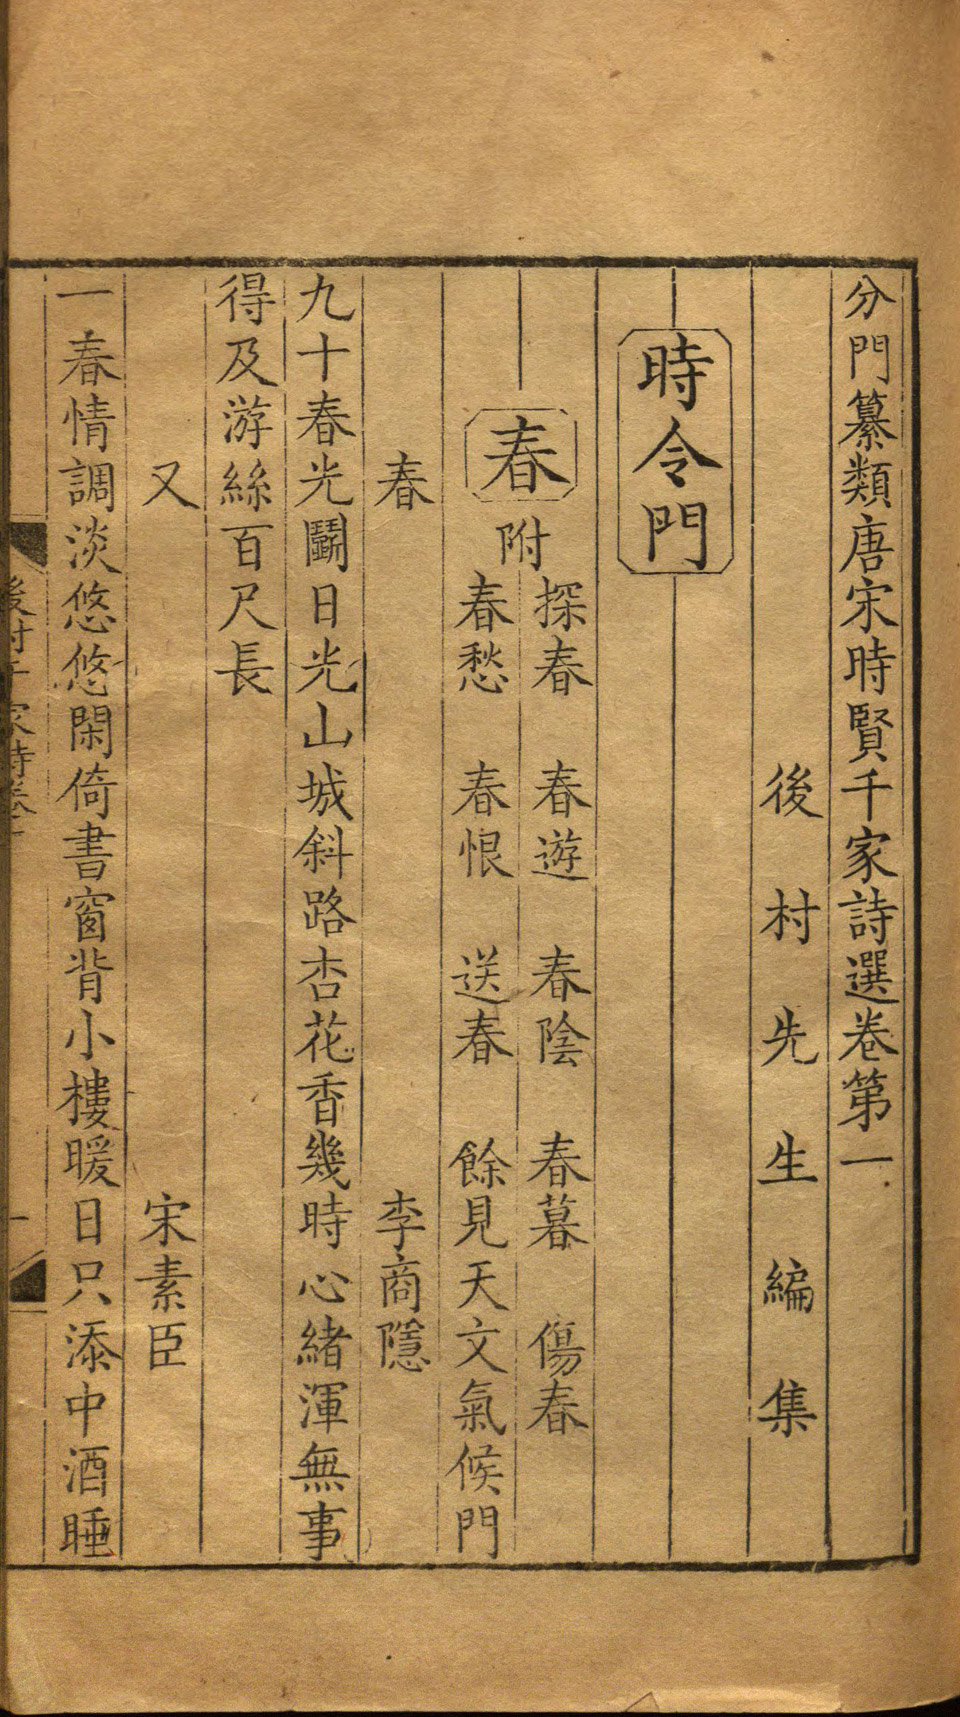 分門纂類唐宋時賢千家詩選卷第一
後村先生編集
時令門
春 附
探春 春遊 春陰 春暮 傷春
春愁 春恨 送春 餘見天文氣候門
春 李商隱
九十春光鬭日光山城斜路杏花香幾時心緒渾無事
得及游絲百尺長
又 宋素臣
一春情調淡悠悠閑倚書窗背小樓暖日只添中酒睡
後村千家詩卷一
一